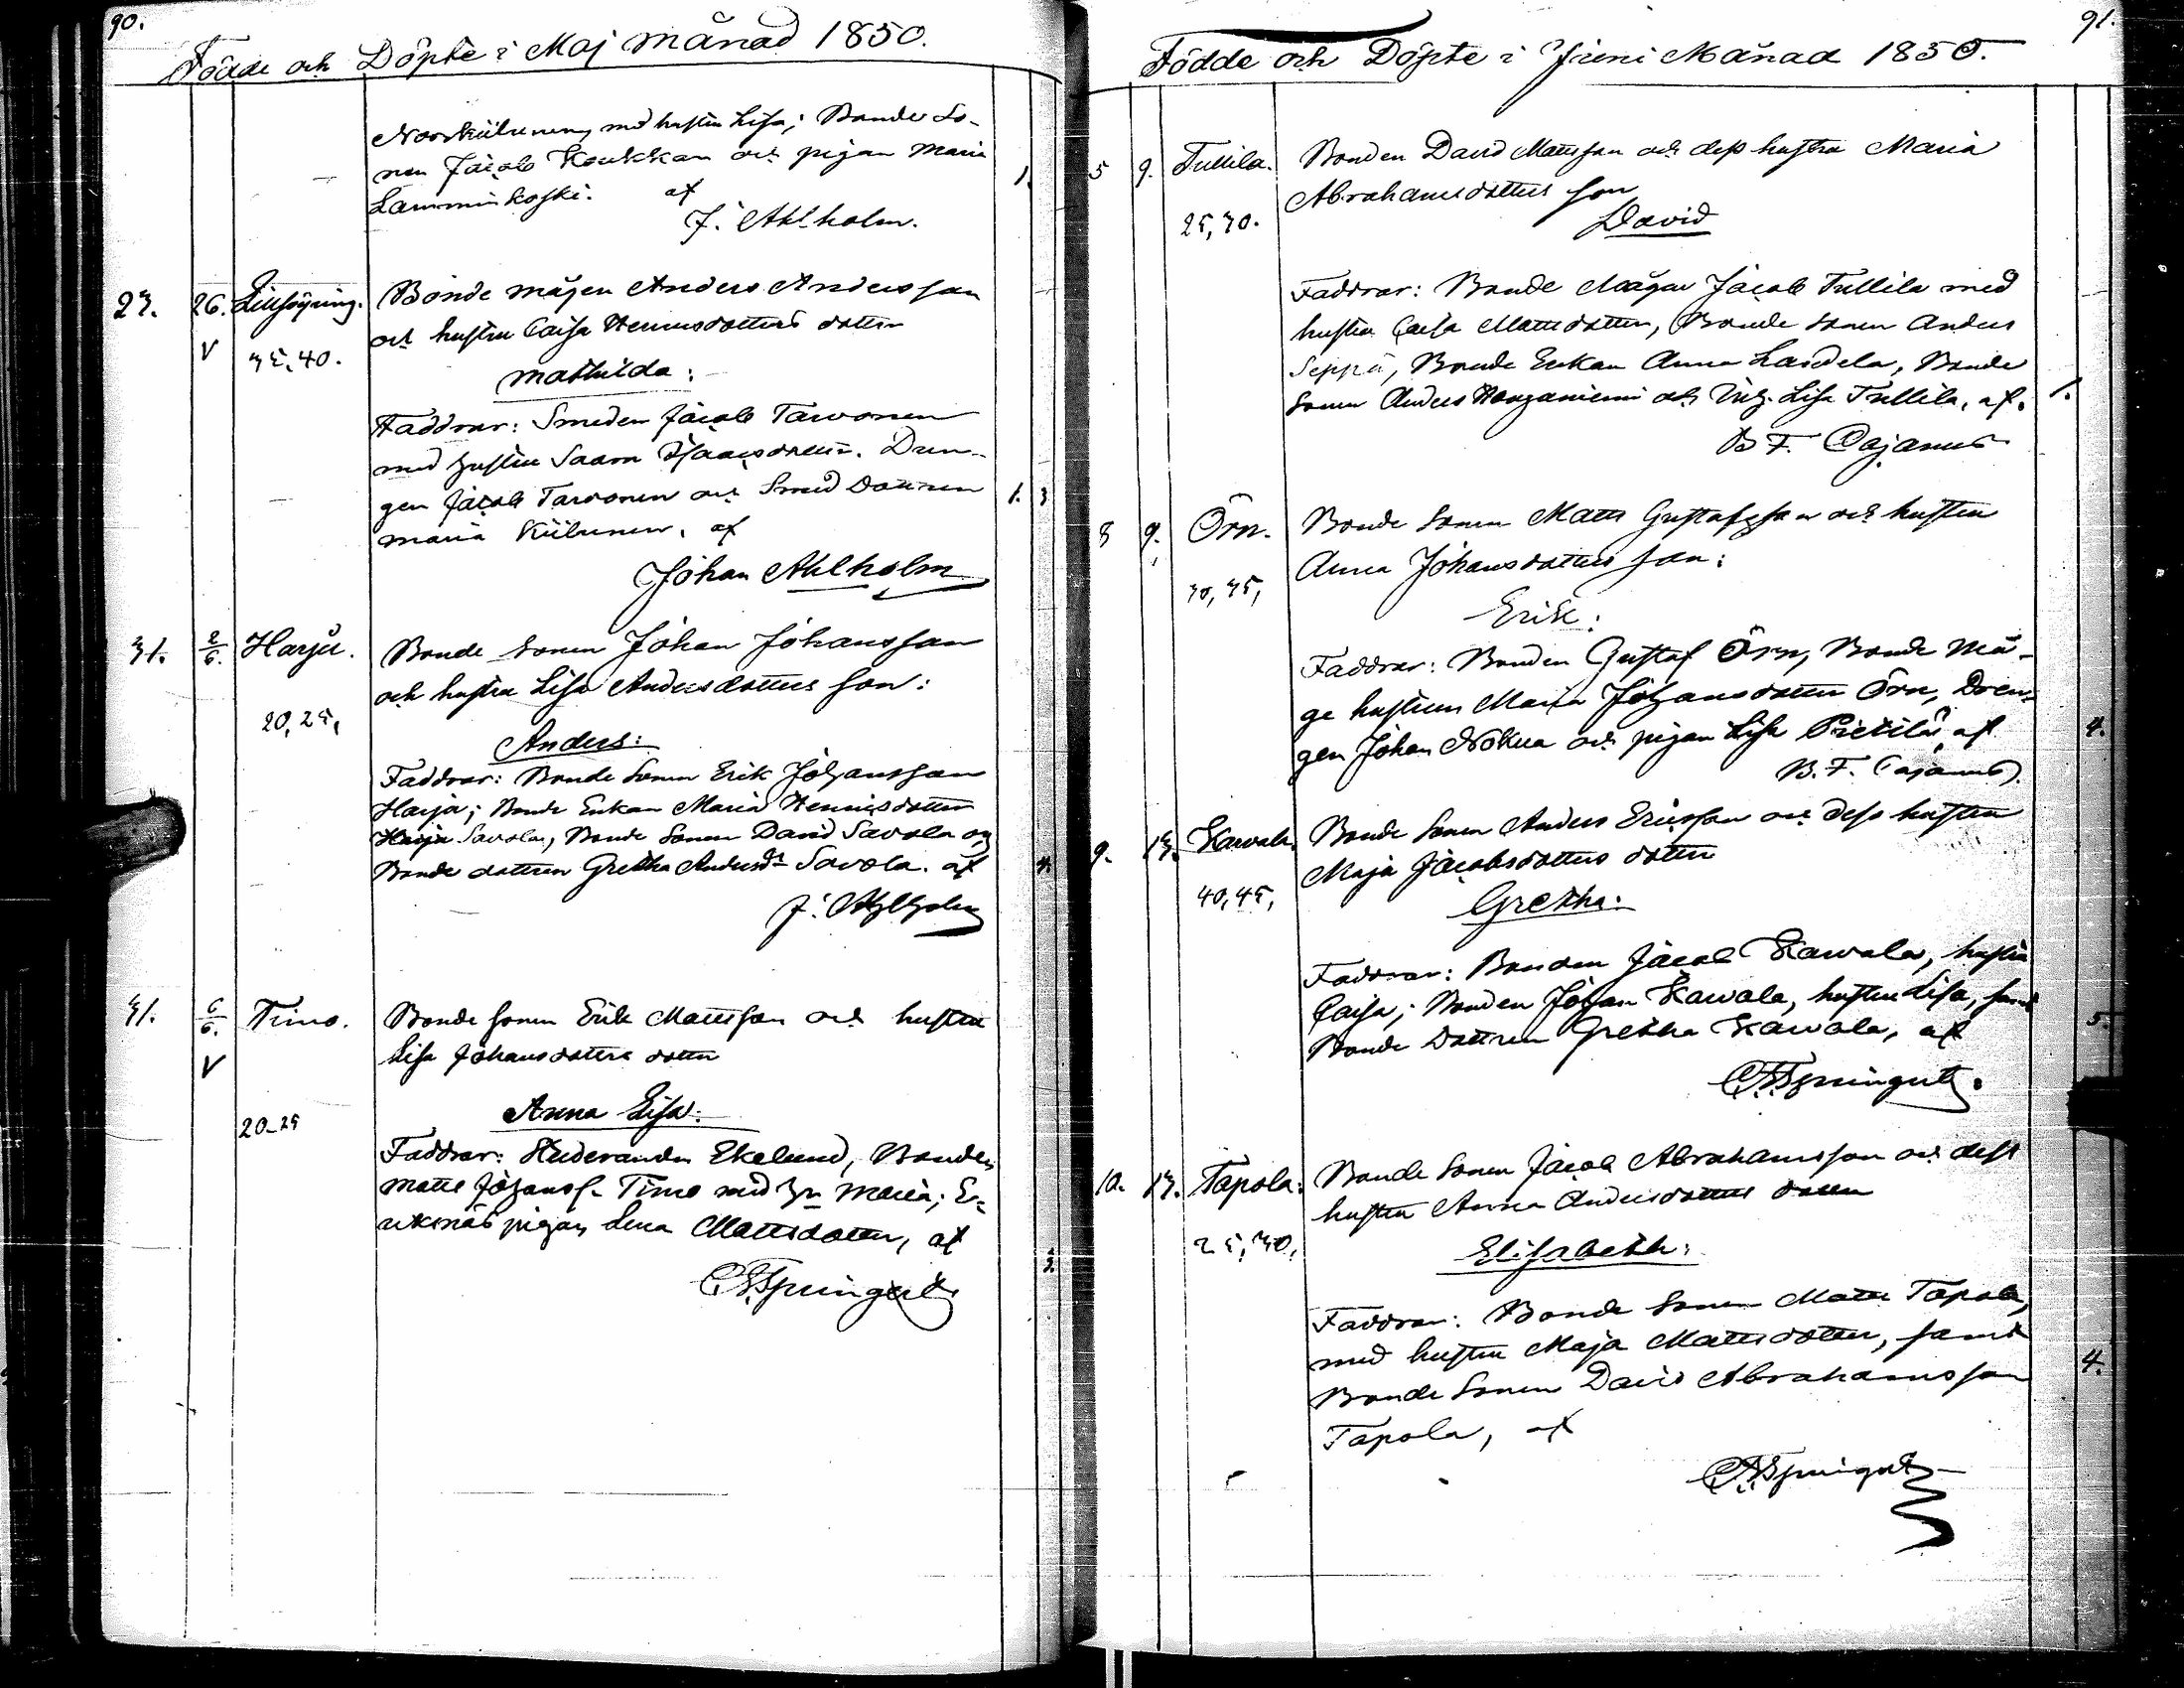 90.
Födde och Döpte i Maj månad 1850.
med hustru Lisa; Bonde So-
nen Jacob Koukkari och pigan Maria
Lamminkoski. af
J. Ahlholm.
1.
23. 26. Bonde mågen Anders Andersson
och hustru Caisa Henricsdotters dotter
V 35, 40.
Mathilda:
Faddrar: Smeden Jacob Tarvonen
med hustru Saara Isaacsdotter. Dren-
gen Jacob Tarvonen och Smed Dottren 1. 3
Maria Kiilunen, af
Johan Ahlholm
31. 2/6. Harju. Bonde Sonen Johan Johansson
och hustru Lisa Andersdotters son:
20, 25,
Anders:
Faddrar: Bonde Sonen Erik Johansson
Harju; Bonde Enkan Maria Henricsdotter
Harju Savola, Bonde Sonen David Savola och
Bonde dottren Gretha Andersdr Savola. af 4.
J. Ahlholm
31. 6/6. Timo. Bonde Sonen Erik Mattsson och hustru
V Lisa Johansdotters dotter
20-25
Anna Lisa:
Faddrar: Studeranden Ekelund, Bonden
Matts Johanss. Timo med hu Maria;
pigan Lena Mattsdotter, af
3.
Springert
91.
Födde och Döpte i Juni Månad 1850.
5 9. Tullila. Bonden David Mattsson och dess hustru Maria
Abrahamsdotters son
25, 30.
David
Faddrar: Bonde Mågen Jacob Tullila med
hustru Caisa Mattsdotter, Bonde Sonen Anders
Seppä, Bonde Enkan Anna Lassila, Bonde
Sonen Anders och Lisa Tullila, af. 1.
B F. Cajanus
8 9. Örn. Bonde Sonen Matts Gustafsson och hustru
Anna Johansdotters son:
30, 35,
Erik:
Faddrar: Bonden Gustaf Örn, Bonde Må-
ge hustrun Maria Johansdotter Örn, Dren-
gen Johan Nokua och pigan Lisa Pietilä, af 4.
B. F. Cajanus.
9. 13. Kawala. Bonde Sonen Anders Ericsson och dess hustru
Maja Jacobsdotters dotter
40, 45,
Gretha:
Faddrar: Bonden Jacob Kawala, hustru
Caisa; Bonden Johan Kawala, hustru Lisa, samt
Bonde Dottren Gretha Kawala, af 5.
Springert.
10. 13. Tapola: Bonde Sonen Jacob Abrahamsson och dess
hustru Anna Andersdotters dotter
25, 30,
Elisabeth:
Faddrar: Bonde Sonen Matts Tapola,
med hustru Maja Mattsdotter, samt
Bonde Sonen David Abrahamsson 4.
Tapola, af
Springert